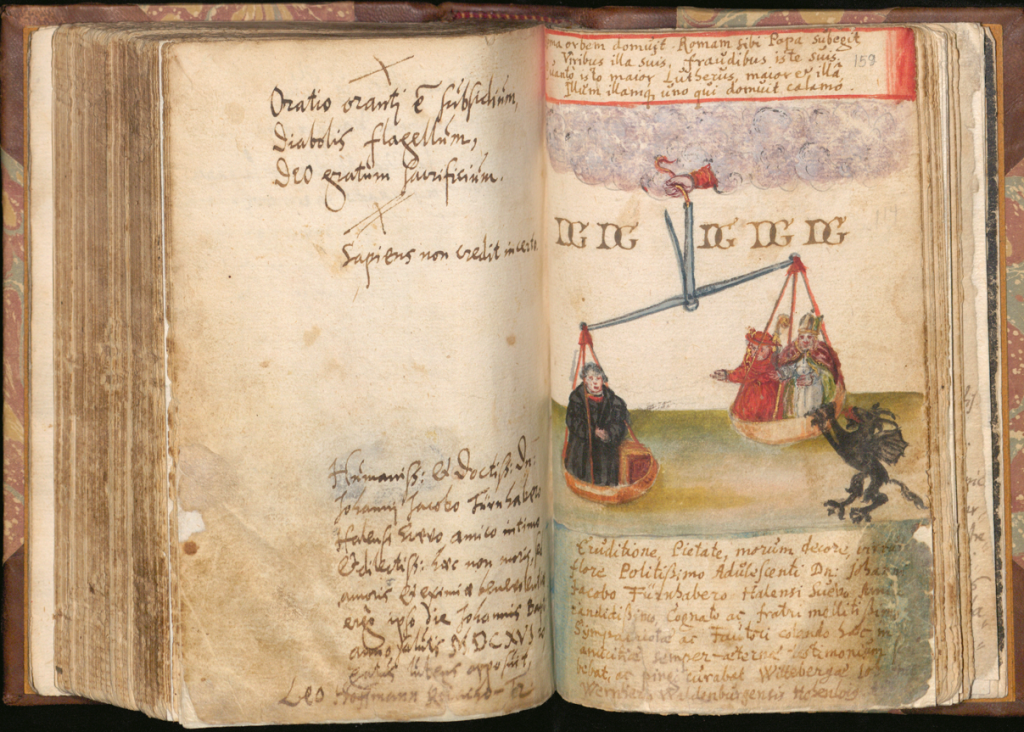 Oratio orantj ē subsidium,
Diabolis flagellum,
Deo gratum sacrificium.
Sapiens non credit incerta
Humaniß: et Doctiß: Dn:
Johanni Jacobo Fürnhabero
Halensi Suevo amico intimo
et dilectiß: hæc non moris, sed
amoris
ergo ipso die Johannis Bapt
anno salutis
lubens apposuit,
Leo Hoffmann
ma orbem domuit. Romam sibi Papa subegit
Viribus illa suis, fraudibus iste suis.
uanto isto maior Lutherus, maior et illâ
Illum illamq uno qui domuit calamo.
158
Eruditione, Pietate, morum decore,
flore Politißimo Adulescenti Dn: Johan
Jacobo Fürnhabero Halensi Suevo
candidißimo, Cognato ac fratri mellitißimo
Sympatriotæ ac Fautori colendo hoc
amicitiæ semper-æternæ testimonium
bebat, ac pingi curabat Wittebergæ Jo
Wernherus Waldenburgensis Hohenlo